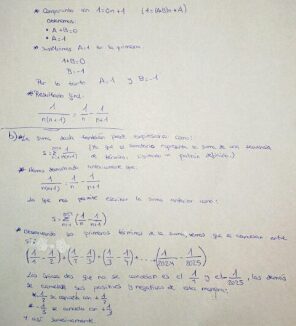 * Comparando con 1=0n+1 (1=(A+B)n+A)
obtenemos:
• A+B=0
• A=1
* Sustituimos A=1 en la primera:
1+B=0
B=-1
Por lo tanto A=1 y B=-1
* Resultado final:
1/n(n+1) = 1/n - 1/n+1
b) * La suma dada también puede expresarse como:
S = Σ 1/n(n+1) (Ya que el sumatorio representa la suma de una secuencia
de términos, siguiendo un patrón definido.)
* Hemos demostrado anteriormente que:
1/n(n+1) = 1/n - 1/n+1
Lo que nos permite escribir la suma anterior como:
S = Σ (1/n - 1/n+1)
* Observando los primeros términos de la suma, vemos que se cancelan entre
sí:
(1/1 - 1/2) + (1/2 - 1/3) + (1/3 - 1/4) + ... + (1/2024 - 1/2025)
Los únicos que no se cancelan es el 1/1 y el -1/2025, los demás
se cancelan sus positivos y negativos de esta manera:
* -1/2 se cancela con +1/2
* -1/3 se cancela con +1/3
Y así sucesivamente.